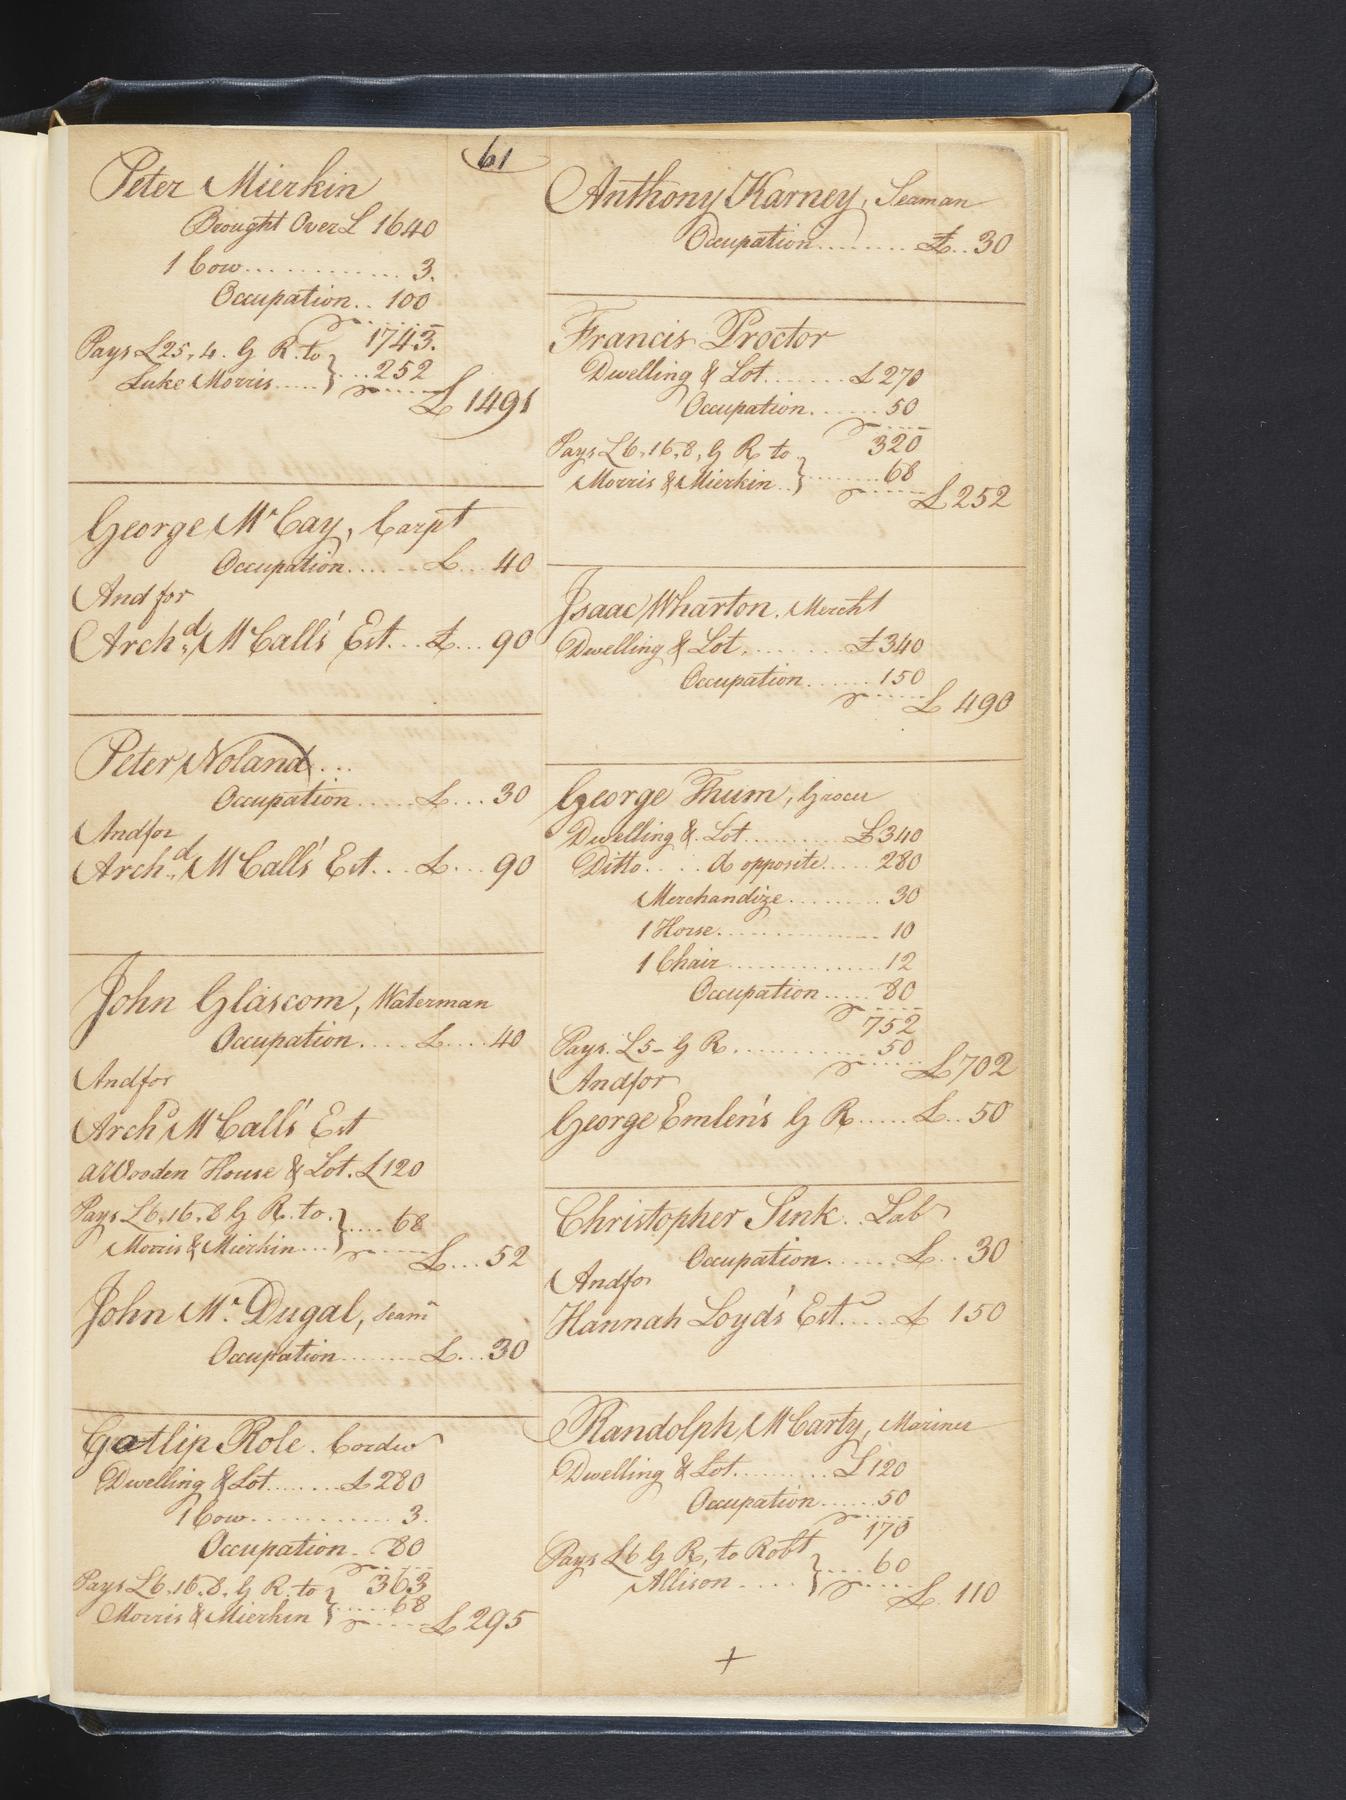 61
Peter Mierkin
Brought Over £ 1640
1 Cow ............ 3.
Occupation .. 100
1743.
Pays £25,,4. G R. to } ... 252
Luke Morris ..... £ 1491
George McCay, Carpt
Occupation ...... £ ... 40
And for
Archd. McCalls' Est. .. £ ... 90
Peter Noland ...
Occupation ..... £ ... 30
And for
Archd. McCalls' Est. .. £ ... 90
John Glascom, Waterman
Occupation .... £ .... 40
And for
Archd McCalls' Est
a Wooden House & Lot. £120
Pays £6,,16,,8 G R. to } .... 68
Morris & Mierkin ... £ ... 52
John Mc. Dugal, Seamn
Occupation ........ £ ... 30
Gotlip Role. Cordw
Dwelling & Lot ....... £280
1 Cow ............ 3.
Occupation .. 80
363
Pays £6.16.8. G R. to } ..... 68
Morris & Mierkin £ 295
Anthony Karney, Seaman
Occupation ......... £ .. 30
Francis Proctor
Dwelling & Lot ....... £270
Occupation ....... 50
320
Pays £6,,16,,8, G R to } ........ 68
Morris & Mierkin .. £252
Isaac Wharton. Mercht
Dwelling & Lot ......... £340
Occupation ...... 150
£ 490
George Thum, Grocer
Dwelling & Lot .......... £340
Ditto .. .. do opposite .... 280
Merchandize ......... 30
1 Horse ............... 10
1 Chair .............. 12
Occupation ..... 80
752
Pays. £5 - G R ............ 50
£702
And for
George Emlen's G R ..... £ .. 50
Christopher Sink .. Labr
Occupation ....... £ .. 30
And for
Hannah Loyd's Est ..... £ 150
Randolph McCarty, Mariner
Dwelling & Lot ......... £120
Occupation ...... 50
170
Pays £6 G R, to Robt } .... 60
Allison ....
£. 110
+